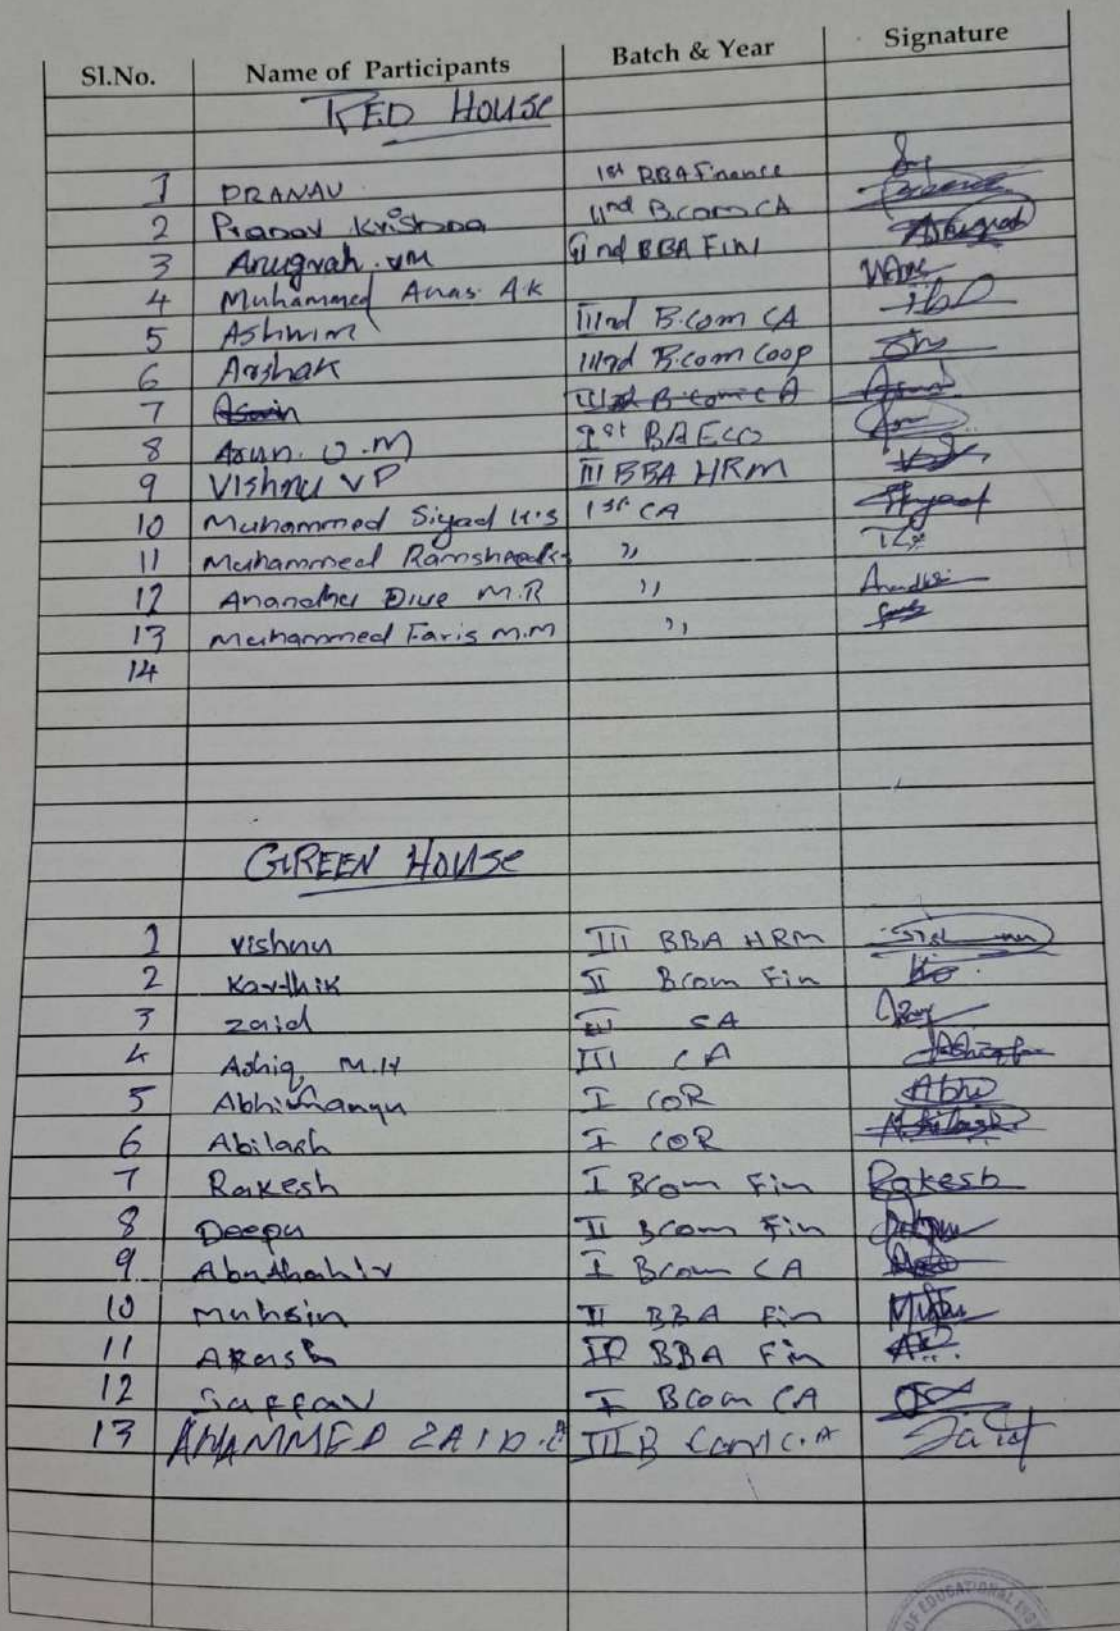 Sl.No. Name of Participants Batch & Year Signature
RED House
1 PRANAV 1st BBA Finance
2 Pranav Krishna IInd B.com CA
3 Anugrah. VM IInd BBA FIN Anugrah
4 Muhammed Anas. A.K
5 Ashwin IIIrd B.com CA
6 Arshak IIIrd B.com Coop
7 Aswin IIIrd B.com CA
8 Arun. O.M Ist BA ECO
9 Vishnu VP III BBA HRM
10 Muhammed Siyad K.S 1st CA Siyad
11 Muhammed Ramsheed ,,
12 Anandhu Dive M.R ,,
13 Muhammed Faris M.M ,,
14
GREEN House
1 Vishnu III BBA HRM
2 Karthik II Bcom Fin
3 Zaid III CA
4 Ashiq M.H III CA
5 Abhimanyu I COR Abhi
6 Abilash I COR Abilash
7 Rakesh I Bcom Fin Rakesh
8 Deepu II Bcom Fin Deepu
9 Abuthahir I Bcom CA
10 Muhsin II BBA Fin
11 Akash II BBA Fin
12 Saffav I Bcom CA
13 AHAMMED ZAID. III B Com C.A Zaid
OF EDUCATIONAL